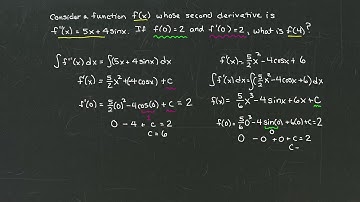 Consider a function f(x) whose second derivative is
f"(x) = 5x + 4sinx. If f(0) = 2 and f'(0) = 2, what is f(4)?
∫f"(x)dx = ∫(5x + 4sinx)dx
f'(x) = 5/2 x² + (-4cosx) + C
f'(0) = 5/2(0)² - 4cos(0) + C = 2
0 - 4 + C = 2
C = 6
f'(x) = 5/2 x² - 4cosx + 6
∫f'(x)dx = ∫(5/2 x² - 4cosx + 6)dx
f(x) = 5/6 x³ - 4sinx + 6x + C
f(0) = 5/6 0³ - 4sin(0) + 6(0) + C = 2
0
0 - 0 + 0 + C = 2
C -